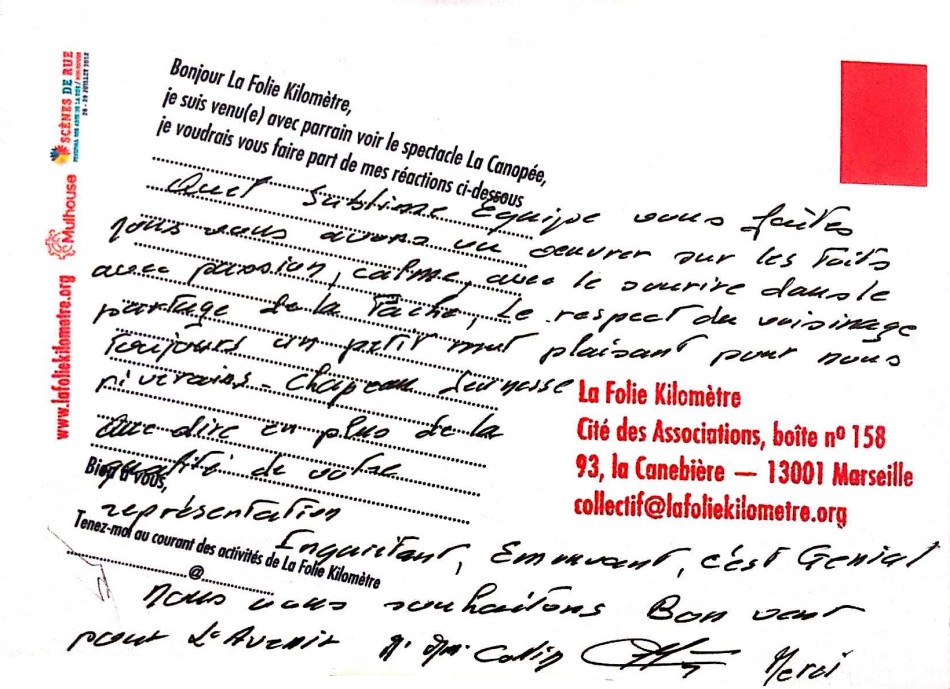 SCÈNES DE RUE
Mulhouse
www.lafoliekilometre.org
Bonjour La Folie Kilomètre,
je suis venu(e) avec parrain voir le spectacle La Canopée,
je voudrais vous faire part de mes réactions ci-dessous
Quel sublime Equipe vous faites
nous vous avons vu oeuvrer sur les toits
avec passion, calme, avec le sourire dans le
partage de la tache, Le respect du voisinage
Toujours un petit mot plaisant pour nous
riverains - Chapeau Jeunesse
Que dire en plus de la
qualité de votre
Bien à vous,
représentation
Inquiétant, Emouvant, c'est Génial
Tenez-moi au courant des activités de La Folie Kilomètre
@
nous vous souhaitons Bon vent
pour L'Avenir Mr Mme Collin Merci
La Folie Kilomètre
Cité des Associations, boîte nº 158
93, la Canebière — 13001 Marseille
collectif@lafoliekilometre.org